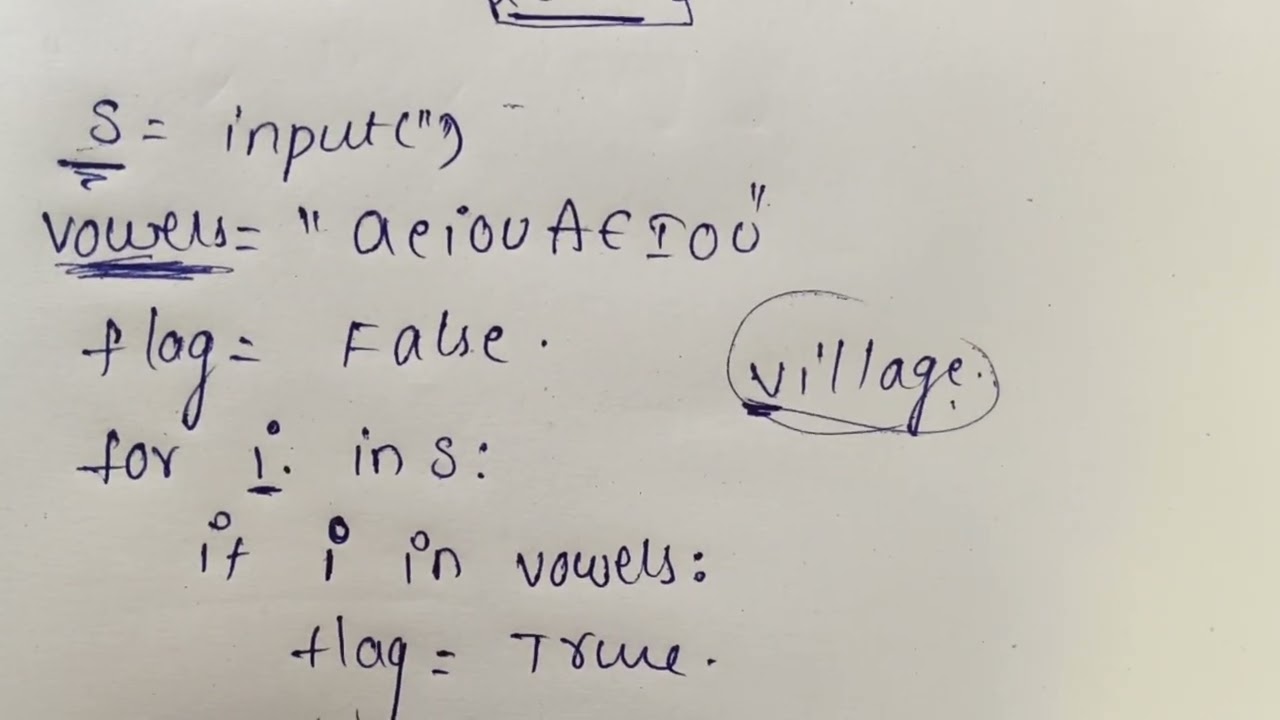 s = input('')
vowels = "aeiouAEIOU"
flag = False.
village.
for i in s:
if i in vowels:
flag = True.